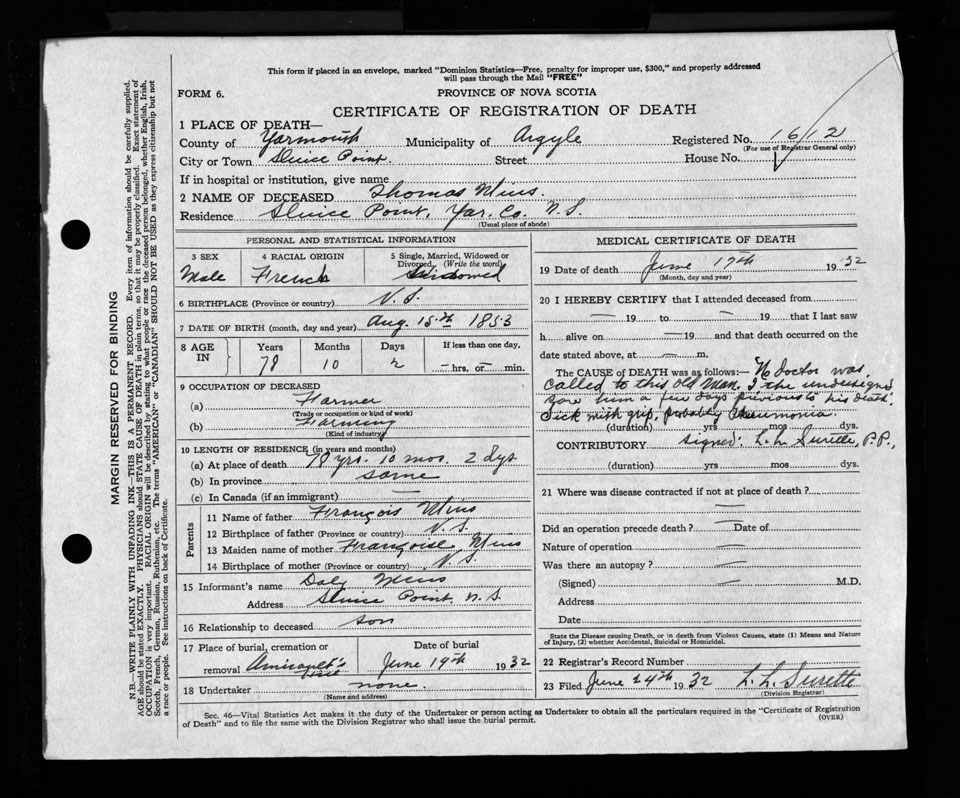 This form if placed in an envelope, marked "Dominion Statistics—Free, penalty for improper use, $300," and properly addressed
will pass through the Mail "FREE"
FORM 6.
PROVINCE OF NOVA SCOTIA
CERTIFICATE OF REGISTRATION OF DEATH
1 PLACE OF DEATH—
County of Yarmouth Municipality of Argyle Registered No. 1612
(For use of Registrar General only)
City or Town Sluice Point. Street House No.
If in hospital or institution, give name
2 NAME OF DECEASED Thomas Mius.
Residence Sluice Point, Yar. Co. N.S.
(Usual place of abode)
PERSONAL AND STATISTICAL INFORMATION
3 SEX Male
4 RACIAL ORIGIN French
5 Single, Married, Widowed or Divorced. (Write the word) Widowed
6 BIRTHPLACE (Province or country) N.S.
7 DATE OF BIRTH (month, day and year) Aug. 15th 1853
8 AGE IN Years Months Days If less than one day,
78 10 2 — hrs. or — min.
9 OCCUPATION OF DECEASED
(a) Farmer
(Trade or occupation or kind of work)
(b) Farming
(Kind of industry)
10 LENGTH OF RESIDENCE (in years and months)
(a) At place of death 78 yrs. 10 mos. 2 dys.
(b) In province same
(c) In Canada (if an immigrant) —
Parents
11 Name of father François Mius
12 Birthplace of father (Province or country) N.S.
13 Maiden name of mother Françoise Mius
14 Birthplace of mother (Province or country) N.S.
15 Informant's name Mius
Address Sluice Point, N.S.
16 Relationship to deceased son
17 Place of burial, cremation or removal Amirault's
Date of burial June 19th 1932
18 Undertaker none.
(Name and address)
MEDICAL CERTIFICATE OF DEATH
19 Date of death June 17th 1932
(Month, day and year)
20 I HEREBY CERTIFY that I attended deceased from
— 19 to — 19 that I last saw
h alive on — 19 and that death occurred on the
date stated above, at — m.
The CAUSE of DEATH was as follows:— No doctor was
called to this old man. I the undersigned
him a few days previous to his death.
Sick with grip, probably Pneumonia.
(duration) yrs mos dys.
CONTRIBUTORY signed: L. L. Surette, P.P.,
(duration) yrs mos dys.
21 Where was disease contracted if not at place of death?
—
Did an operation precede death? — Date of
Nature of operation —
Was there an autopsy? —
(Signed) — M.D.
Address
Date
State the Disease causing Death, or in death from Violent Causes, state (1) Means and Nature
of Injury, (2) whether Accidental, Suicidal or Homicidal.
22 Registrar's Record Number
23 Filed June 24th 1932 L. L. Surette
(Division Registrar)
Sec. 46—Vital Statistics Act makes it the duty of the Undertaker or person acting as Undertaker to obtain all the particulars required in the "Certificate of Registration
of Death" and to file the same with the Division Registrar who shall issue the burial permit.
(OVER)
MARGIN RESERVED FOR BINDING
N.B. WRITE PLAINLY WITH UNFADING INK—THIS IS A PERMANENT RECORD. Every item of information should be carefully supplied.
AGE should be stated EXACTLY. PHYSICIANS should STATE CAUSE OF DEATH in plain terms, so that it may be properly classified. Exact statement of
OCCUPATION is very important. RACIAL ORIGIN will be described by stating to what people or race the deceased person belonged, whether English, Irish,
Scotch, French, German, Russian, Ruthenian, etc. The terms "AMERICAN" or "CANADIAN" SHOULD NOT BE USED as they express citizenship but not
a race or people. See instructions on back of Certificate.